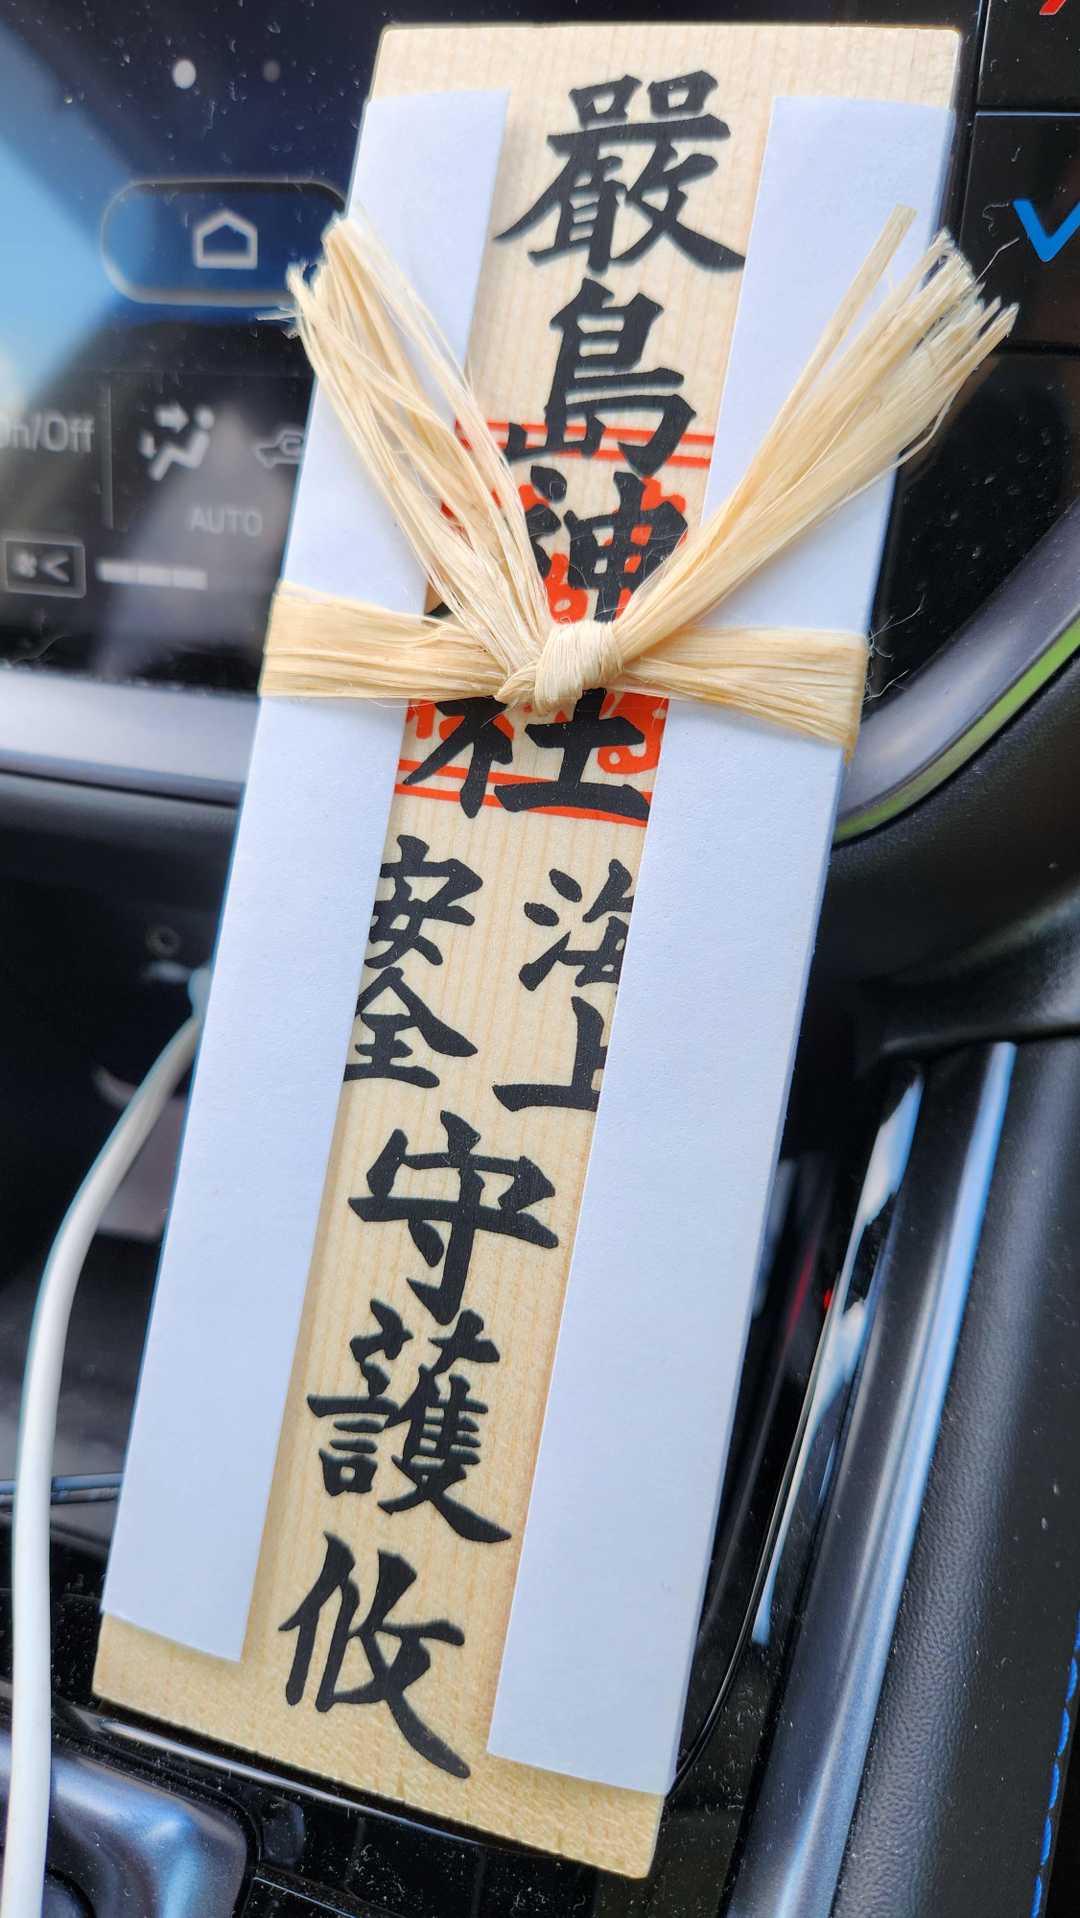 嚴島神社
海上
安全
守護攸
On/Off
AUTO